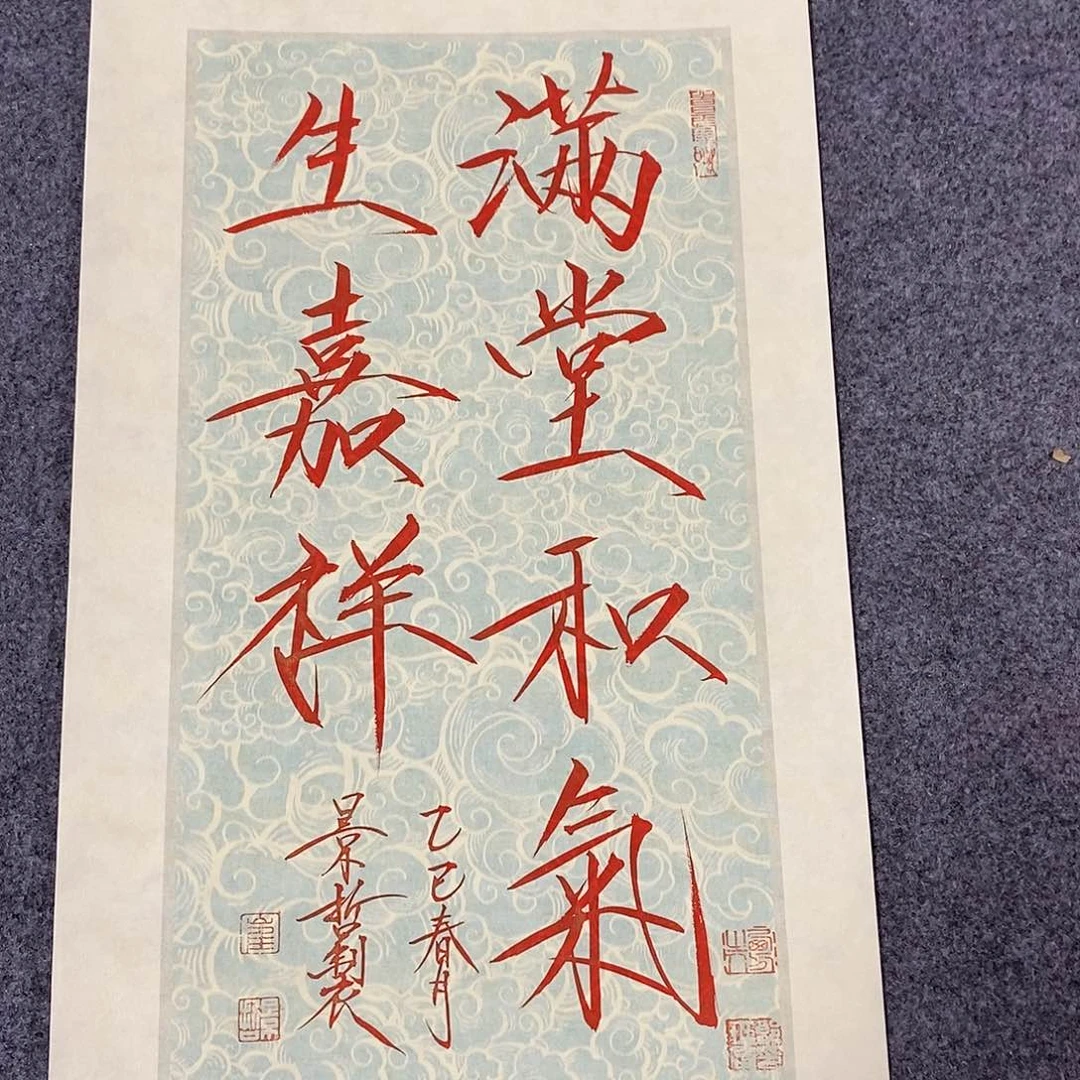 满堂和氣
生嘉祥
乙巳春月
景哲製